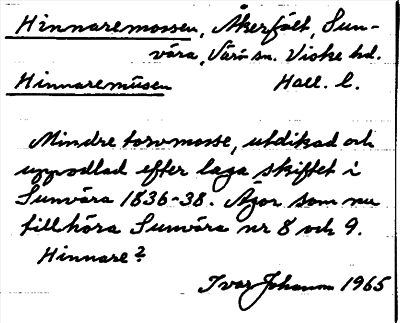 Hinnaremossen, Åkerfält, Sun-
våra, Värö sn. Viske hd.
Hinnaremúsen Hall. l.
Mindre torvmosse, utdikad och
uppodlad efter laga skiftet i
Sunvåra 1836-38. Ägor som nu
tillhöra Sunvåra nr 8 och 9.
Hinnare?
Ivar Johanson 1965